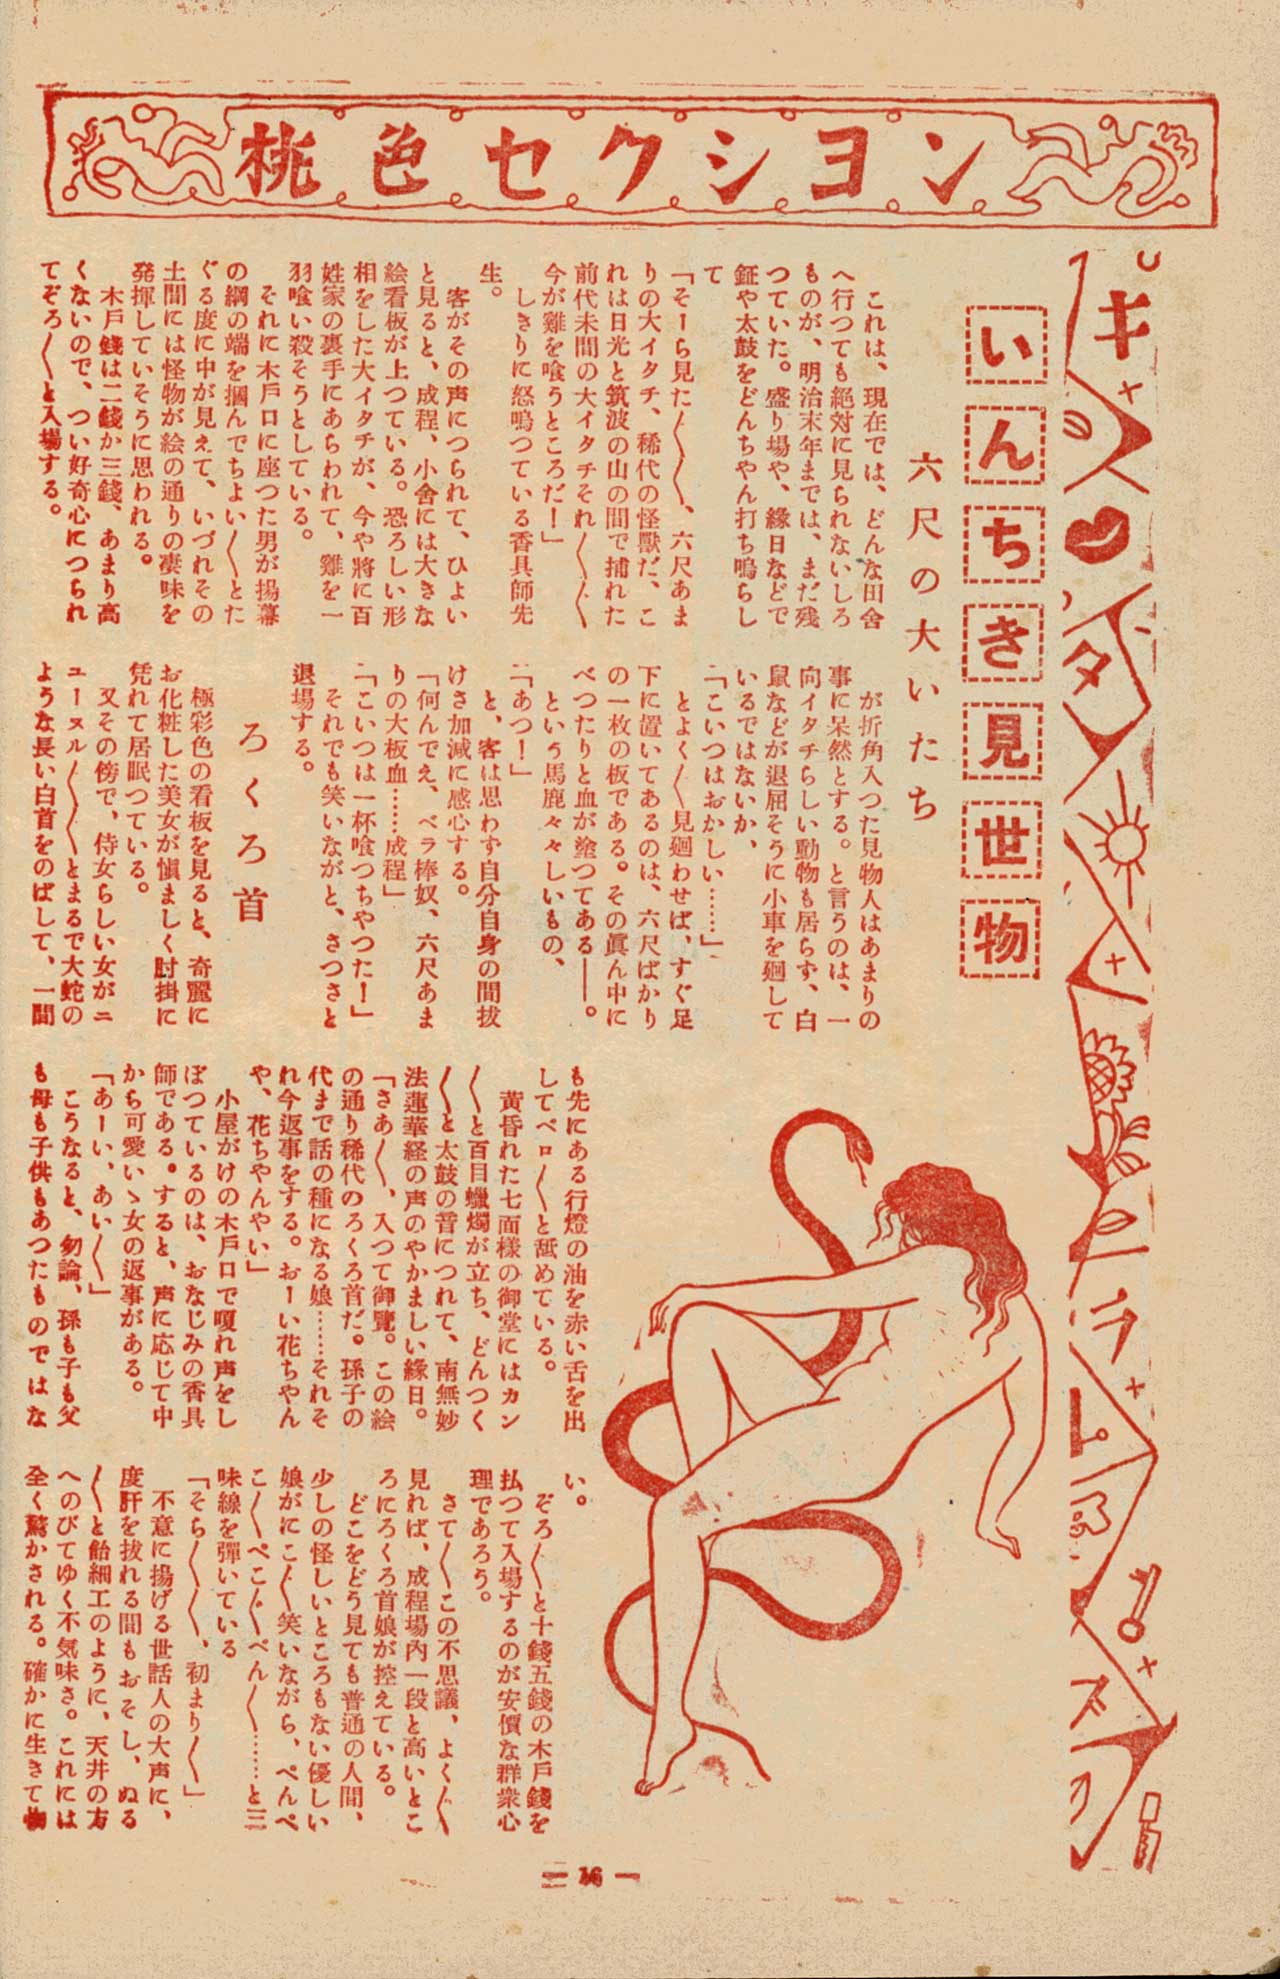 桃色セクシヨン
いんちき見世物
六尺の大いたち
これは、現在では、どんな田舎
へ行つても絶対に見られないしろ
ものが、明治末年までは、まだ残
つていた。盛り場や、縁日などで
鉦や太鼓をどんちやん打ち鳴らし
て
「そーら見た〱〱、六尺あま
りの大イタチ、稀代の怪獣だ、こ
れは日光と筑波の山の間で捕れた
前代未聞の大イタチそれ〱〱〱
今が雞を喰うところだ！」
しきりに怒鳴つている香具師先
生。
客がその声につられて、ひよい
と見ると、成程、小舎には大きな
絵看板が上つている。恐ろしい形
相をした大イタチが、今や將に百
姓家の裏手にあらわれて、雞を一
羽喰い殺そうとしている。
それに木戸口に座つた男が揚幕
の綱の端を掴んでちよい〱とた
ぐる度に中が見えて、いづれその
土間には怪物が絵の通りの凄味を
発揮していそうに思われる。
木戸錢は二錢か三錢、あまり高
くないので、つい好奇心につられ
てぞろ〱と入場する。
が折角入つた見物人はあまりの
事に呆然とする。と言うのは、一
向イタチらしい動物も居らず、白
鼠などが退屈そうに小車を廻して
いるではないか、
「こいつはおかしい……」
とよく〱見廻わせば、すぐ足
下に置いてあるのは、六尺ばかり
の一枚の板である。その眞ん中に
べつたりと血が塗つてある――。
という馬鹿々々しいもの、
「あつ！」
と、客は思わず自分自身の間抜
けさ加減に感心する。
「何んでえ、ベラ棒奴、六尺あま
りの大板血……成程」
「こいつは一杯喰つちやつた！」
それでも笑いながと、さつさと
退場する。
ろくろ首
極彩色の看板を見ると、奇麗に
お化粧した美女が愼ましく肘掛に
凭れて居眠つている。
又その傍で、侍女らしい女がニ
ユーヌル〱〱とまるで大蛇の
ような長い白首をのばして、一間
も先にある行燈の油を赤い舌を出
してペロ〱と舐めている。
黄昏れた七面様の御堂にはカン
〱と百目蠟燭が立ち、どんつく
〱と太鼓の音につれて、南無妙
法蓮華経の声のやかましい縁日。
「さあ〱、入つて御覽。この絵
の通り稀代のろくろ首だ。孫子の
代まで話の種になる娘……それそ
れ今返事をする。おーい花ちやん
や、花ちやんやい」
小屋がけの木戸口で嗄れ声をし
ぼつているのは、おなじみの香具
師である。すると、声に応じて中
から可愛いゝ女の返事がある。
「あーい、あい〱」
こうなると、勿論、孫も子も父
も母も子供もあつたものではな
い。
ぞろ〱と十錢五錢の木戸錢を
払つて入場するのが安價な群衆心
理であろう。
さて〱この不思議、よく〱
見れば、成程場內一段と高いとこ
ろにろくろ首娘が控えている。
どこをどう見ても普通の人間、
少しの怪しいところもない優しい
娘がにこ〱笑いながら、ぺんぺ
こ〱ぺこ〱ぺん〱……と三
味線を彈いている
「そら〱〱、初まり〱」
不意に揚げる世話人の大声に、
度肝を拔れる間もおそし、ぬる
〱と飴細工のように、天井の方
へのびてゆく不気味さ。これには
全く驚かされる。確かに生きて物
16